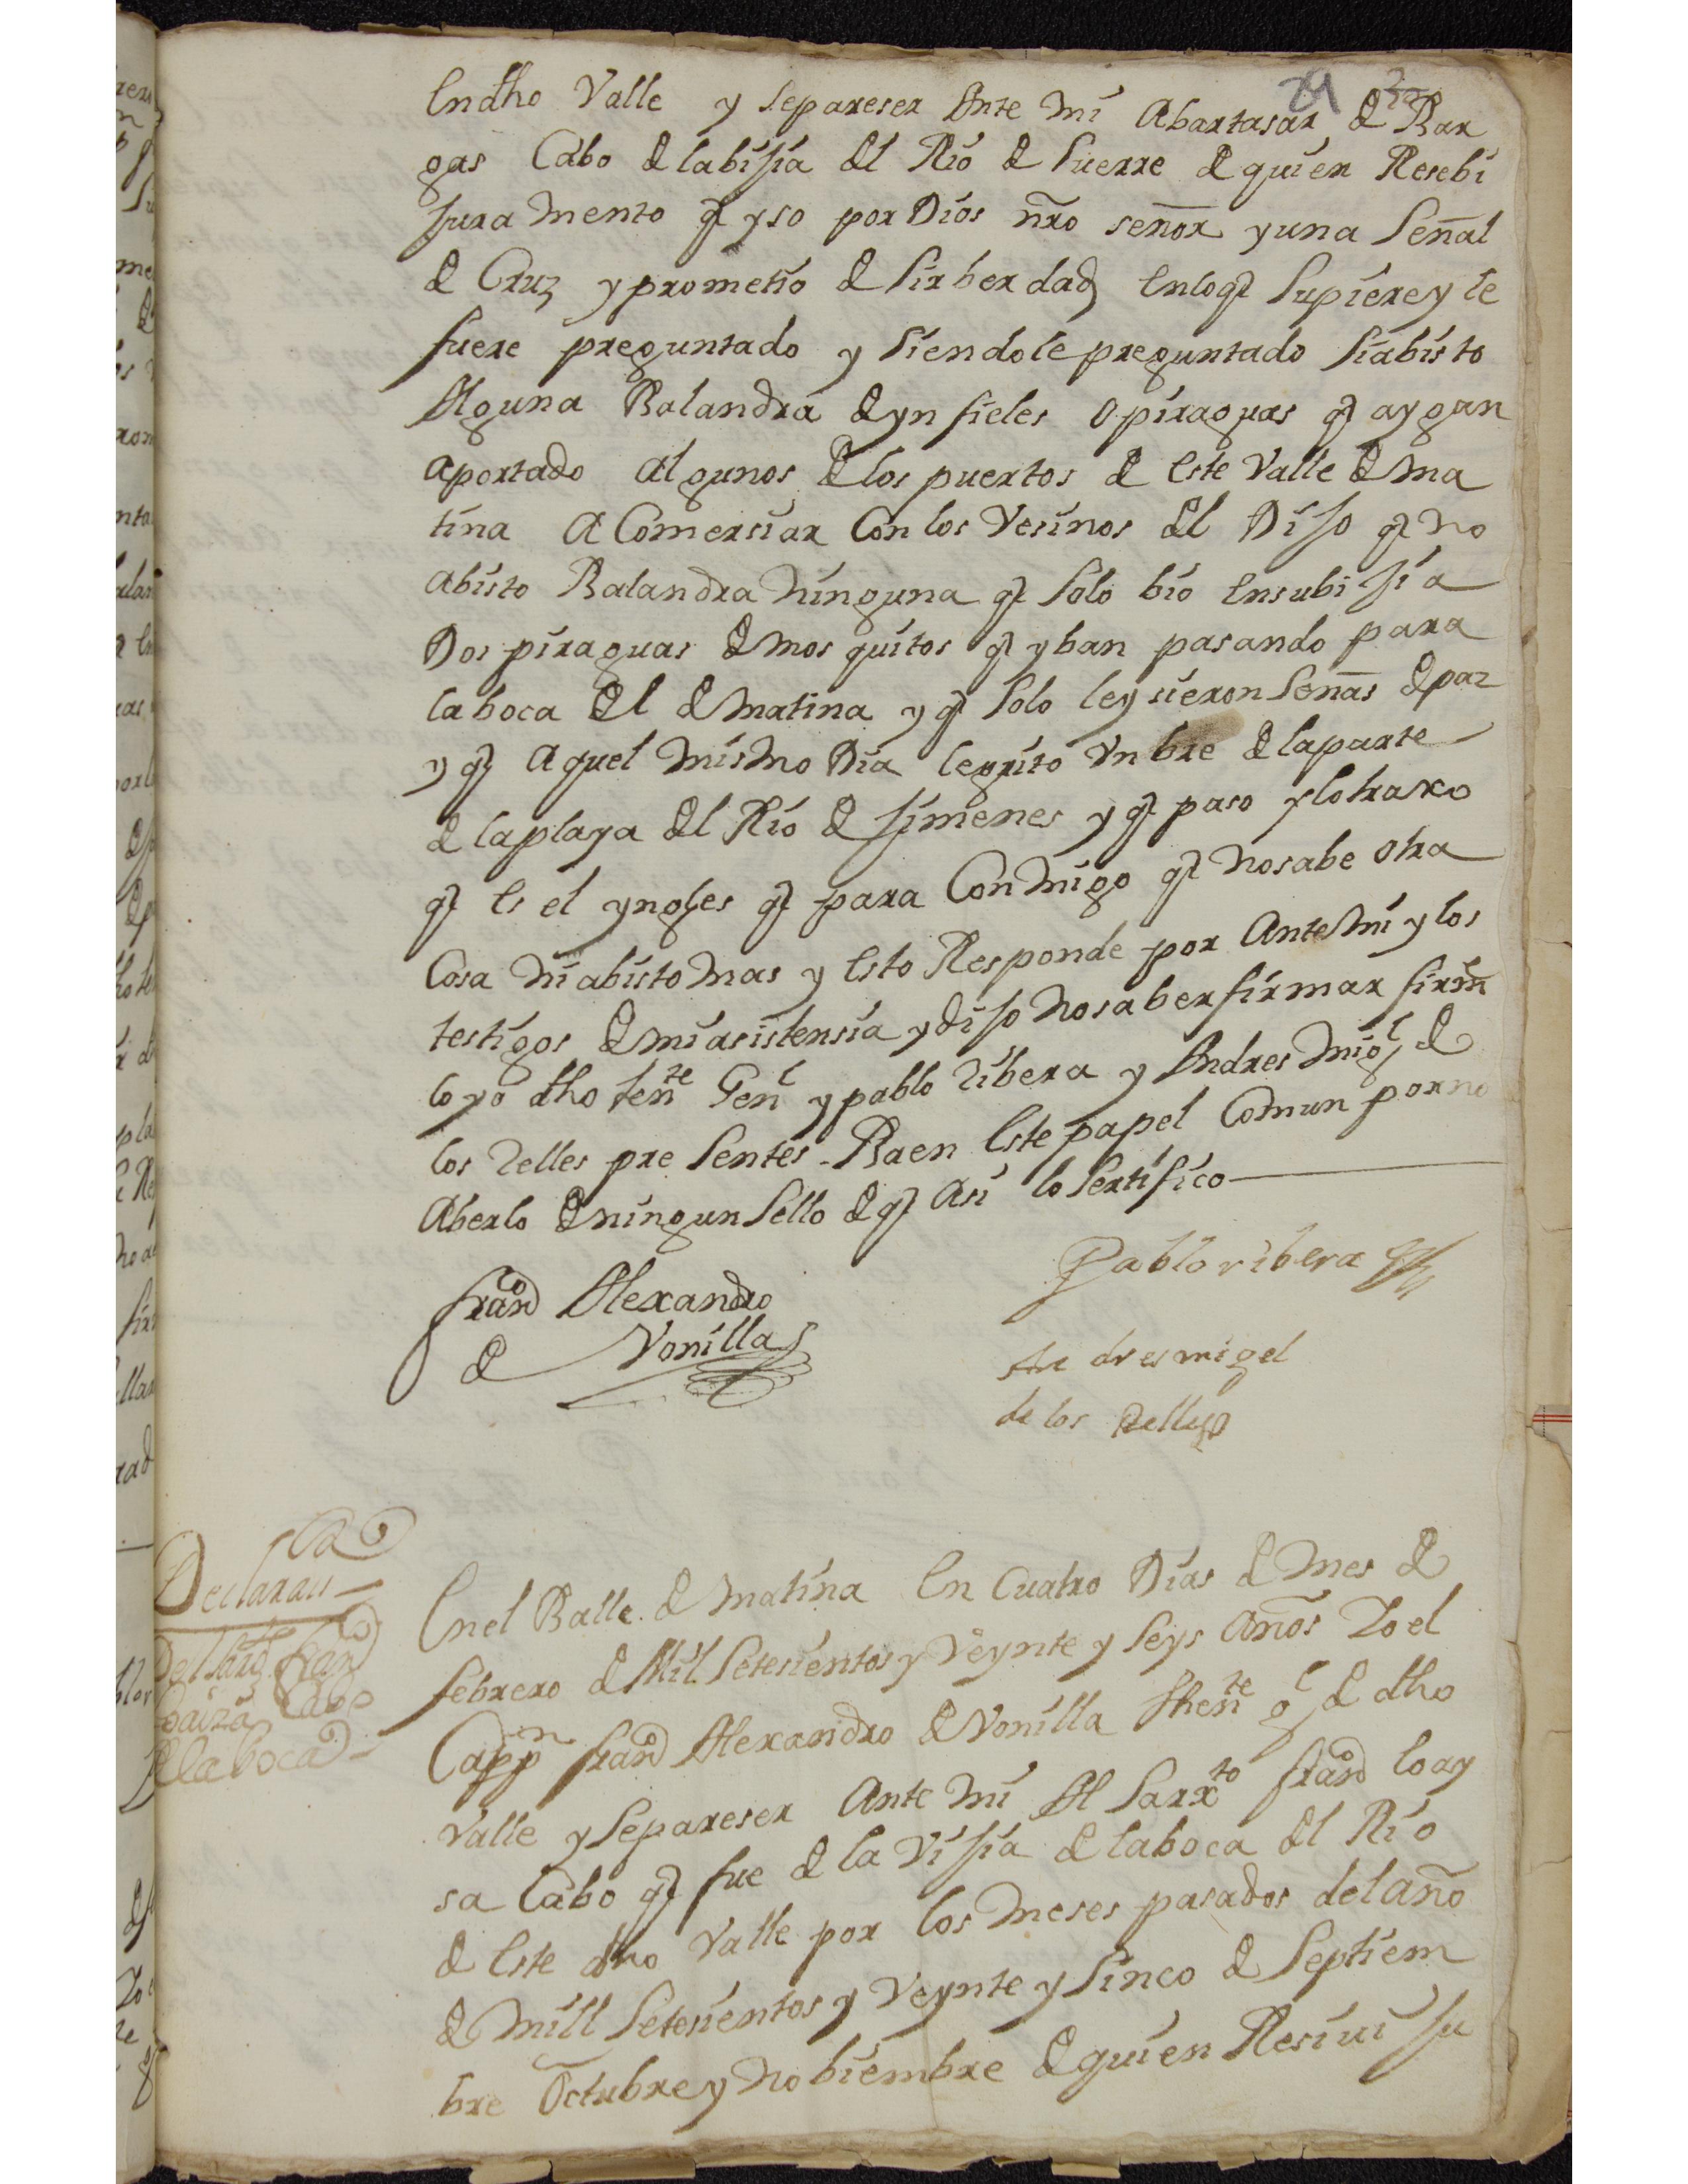 24
En dho Valle y se pareser Ante mi Abartasar de Bar
gas Cabo de la bijia del Rio de Suerre de quien Resebi
jura mento q yso por Dios nro señor y una Señal
de Cruz y prometio de Sir berdad en lo q Supiere y le
fuere preguntado y Siendole preguntado Si abisto
Alguna Balandra de ynfieles o piraguas q aygan
aportado algunos de los puertos de este Valle de ma
tina a Comersiar Con los Vesinos del Dijo q no
abisto Balandra ninguna q Solo bio en su bijia
Dos piraguas de mosquitos q yban pasando para
la boca del de matina y q Solo le ysieron Señas de paz
y q aquel mismo Dia le grito Vn bre de la parte
de la playa del Rio de jimenes y q paso y lo traxo
q es el yngles q para Conmigo q no sabe otra
Cosa ni abisto mas y esto Responde por Ante mi y los
testigos de mi asistensia y dijo no saber firmar firm
lo yo dho tente Genl y pablo ribera y Andres migl de
los relles presentes - Ba en este papel Comun por no
Aberlo de ningun Sello de q asi lo Sertifico
Franco Alexandro
de Vonilla
Pablo ribera
An dres migel
de los Relles
Declarasi
del Sarto Franco
Loaiza Cabo
de la boca
En el Balle de matina en Cuatro Dias de mes de
febrero de Mil Setesientos y Veynte y Seys años Yo el
Cappn Franco Alexandro de Vonilla thente gl de dho
Valle y Se pareser Ante mi Al Sarxto franco loay
sa Cabo q fue de la Vijia de la boca del Rio
de este dho Valle por los meses pasados del año
de mill Setesientos y Veynte y Sinco de Septiem
bre Octubre y nobiembre de quien Resiui ju